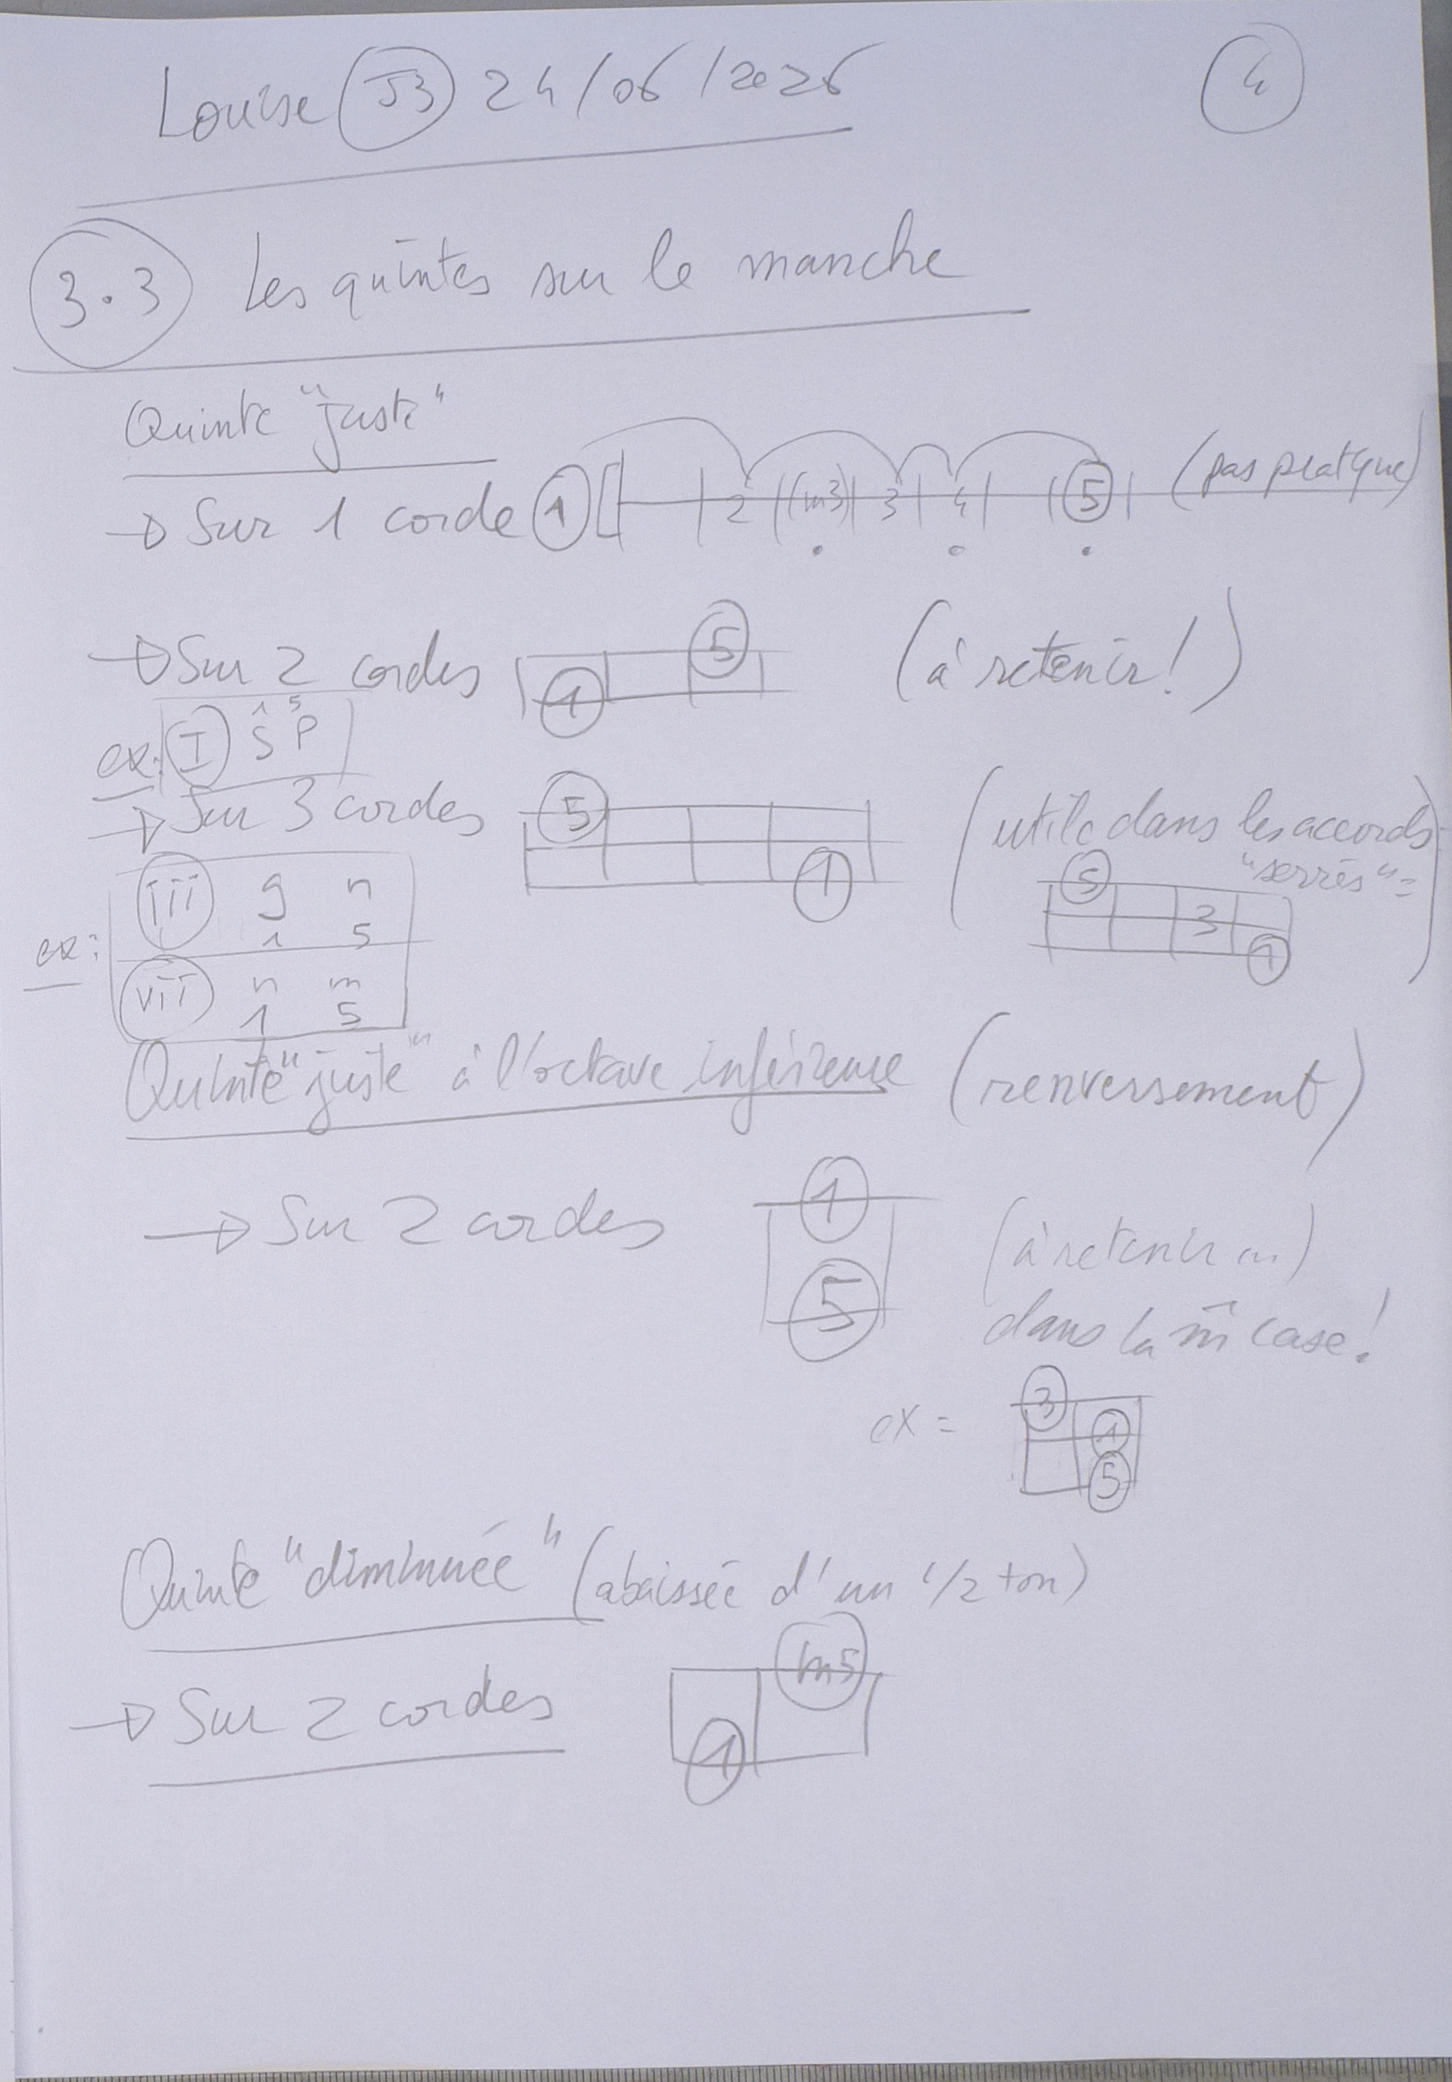 Louise J3 24/06/2026 4
3.3 Les quintes sur le manche
Quinte "juste"
→ Sur 1 corde 1 2 (m3) 3 4 5 (pas pratique)
→ Sur 2 cordes 1 5 (à retenir!)
1 5
ex: I S P
→ Sur 3 cordes 5 1 (utile dans les accords
"serrés" =
5 3 1)
ex:
iii g n
1 5
vii n m
1 5
Quinte "juste" à l'octave inférieure (renversement)
→ Sur 2 cordes 1 5 (à retenir ...)
dans la m̄ case!
ex = 3 1 5
Quinte "diminuée" (abaissée d'un 1/2 ton)
→ Sur 2 cordes 1 m5